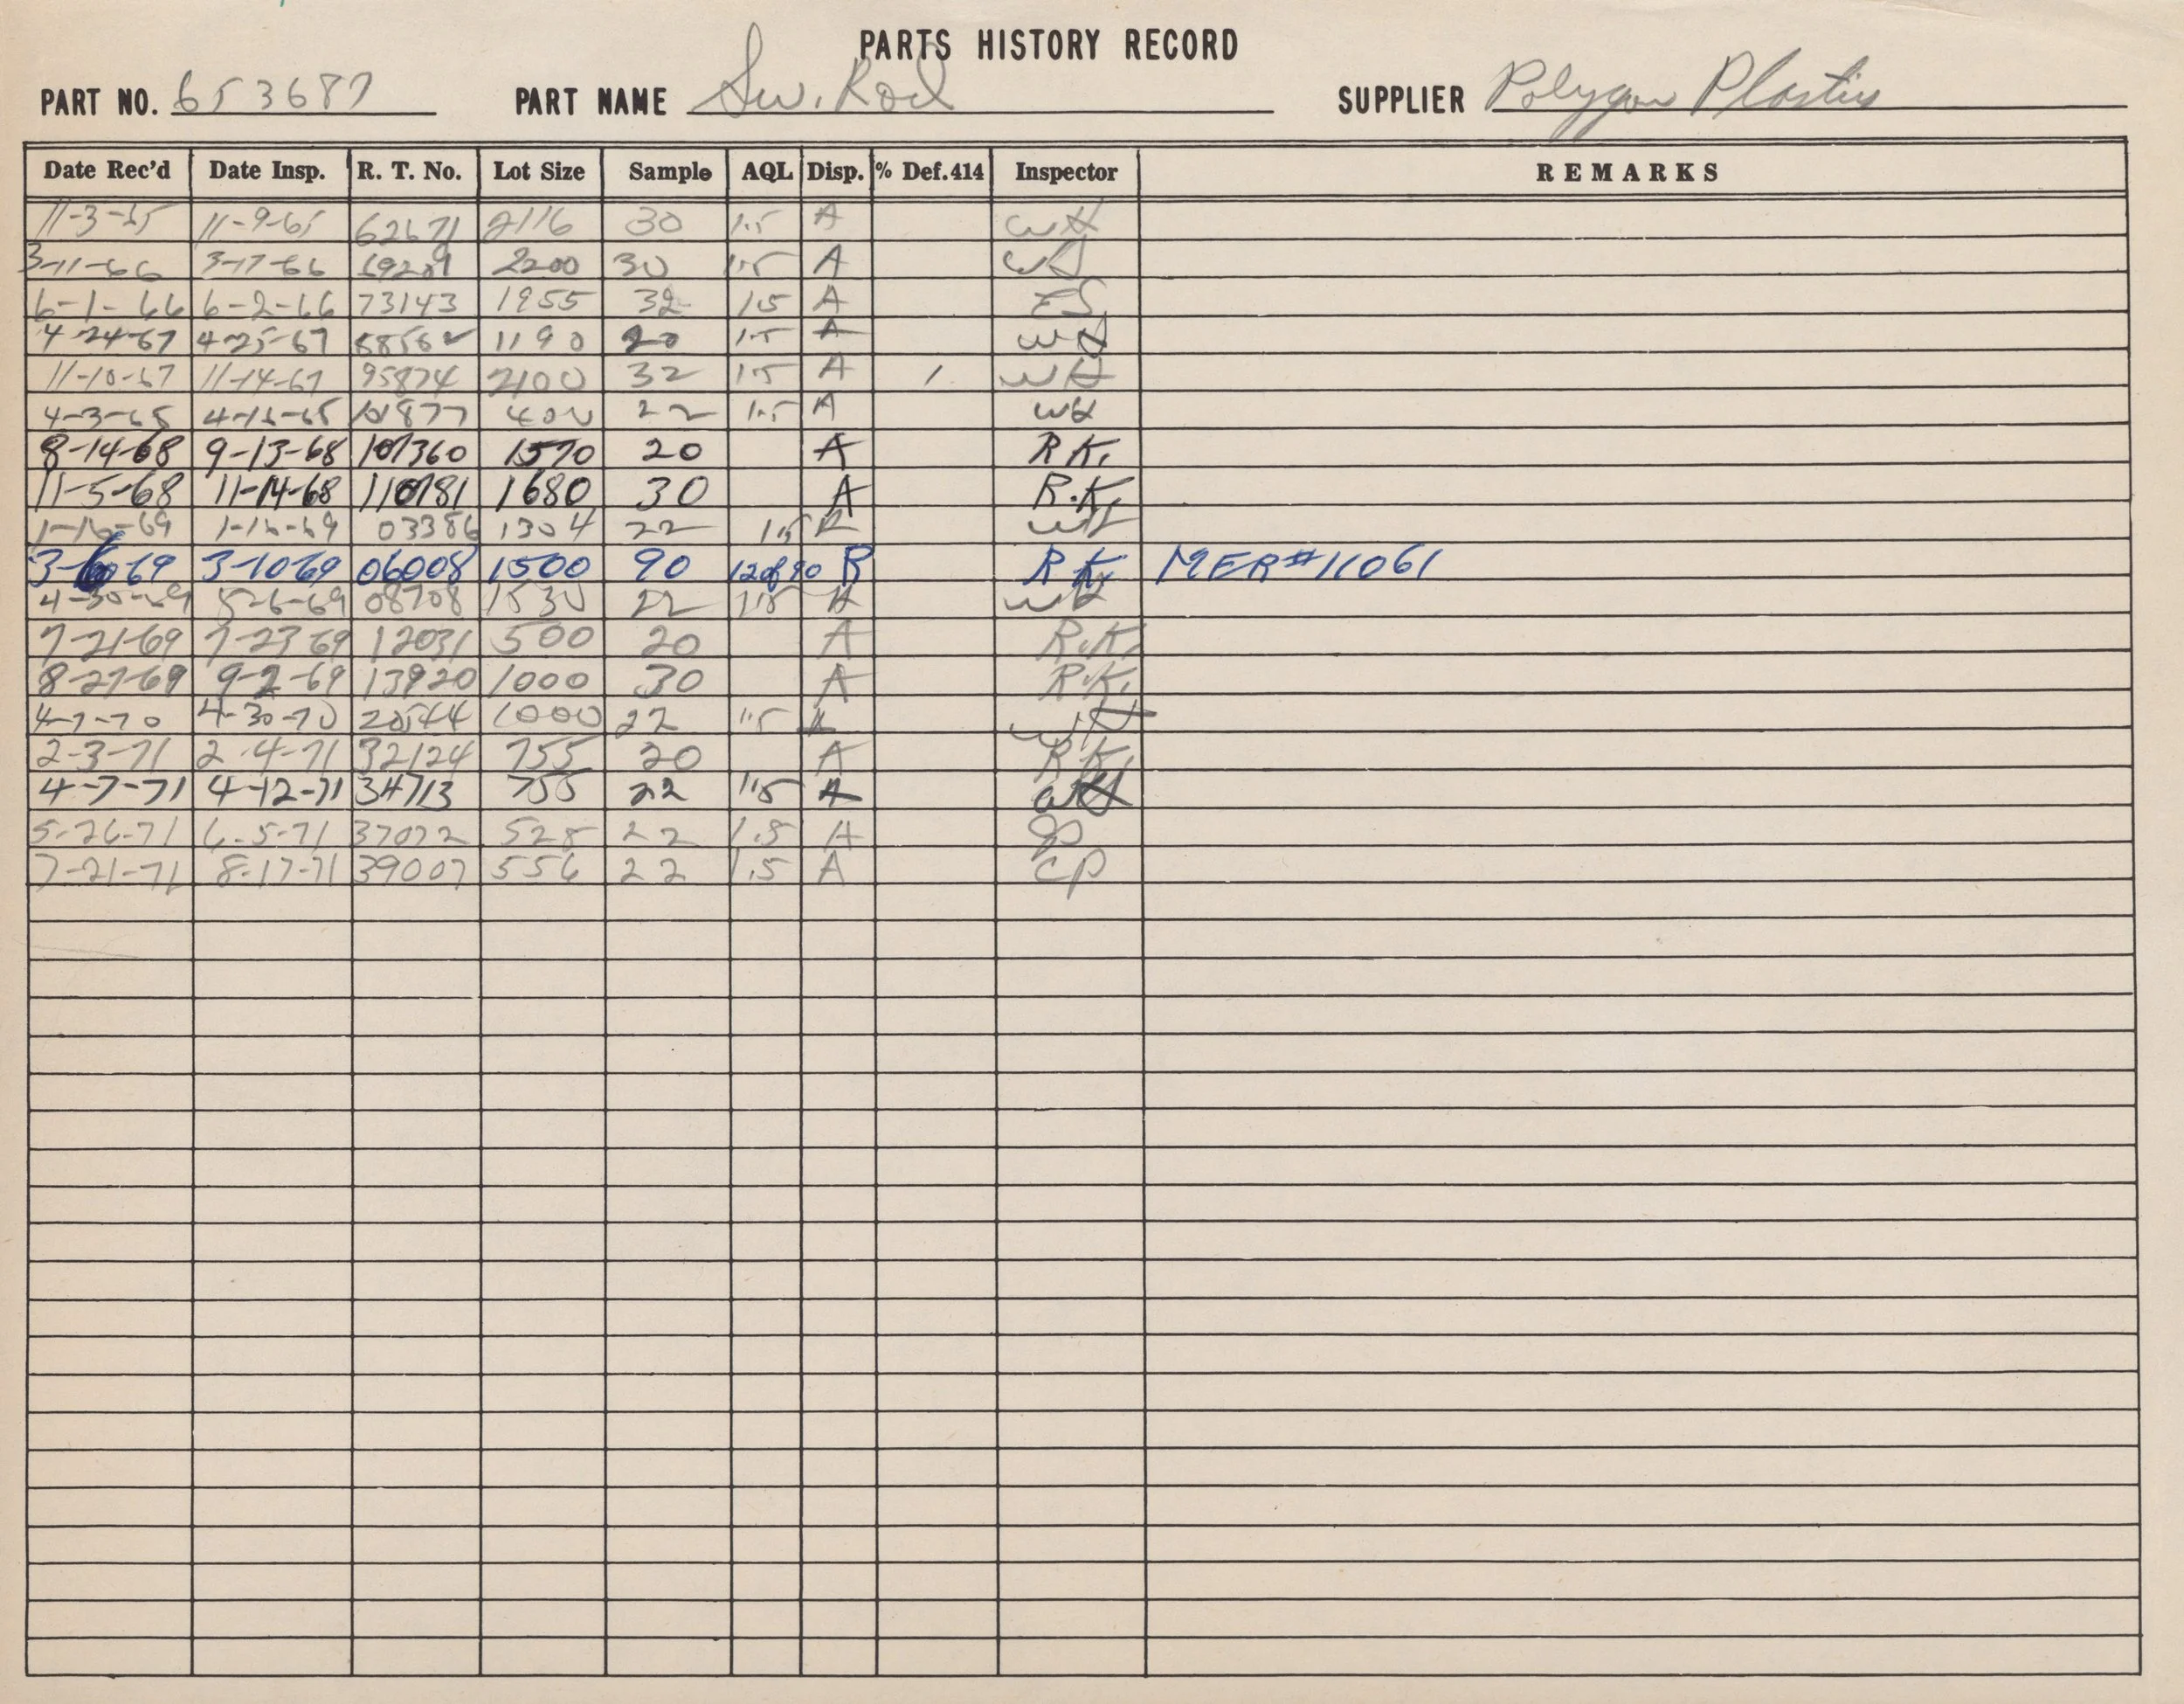 PARTS HISTORY RECORD
PART NO. 653687 PART NAME Sw. Rod SUPPLIER Polygon Plastics
Date Rec'd Date Insp. R. T. No. Lot Size Sample AQL Disp. % Def.414 Inspector REMARKS
11-3-65 11-9-65 62671 2116 30 1.5 A WH
3-11-66 3-17-66 2200 30 1.5 A
6-1-66 6-2-66 73143 1955 32 15 A ES
4-24-67 4-25-67 88562 1190 20 1.5 A WH
11-10-67 11-14-67 95874 2100 32 15 A 1 WH
4-3-68 101877 400 22 1.5 A WH
8-14-68 9-13-68 107360 1570 20 A R K.
11-5-68 11-14-68 110781 1680 30 A R.K.
1-16-69 1-16-69 03386 1304 22 1.5 WH
3-6-69 3-10-69 06008 1500 90 12 of 90 R R K. MER#11061
4-30-69 5-6-69 08708 1530 22 1.5 A WH
7-21-69 7-23-69 12031 500 20 A R.K.
8-27-69 9-2-69 13920 1000 30 A R.K.
4-7-70 4-30-70 20544 1000 22 1.5 A WH
2-3-71 2-4-71 32124 755 20 A R K.
4-7-71 4-12-71 34713 755 22 1.5 A WH
5-26-71 6-5-71 37072 528 22 1.5 A
7-21-71 8-17-71 39007 556 22 1.5 A CP